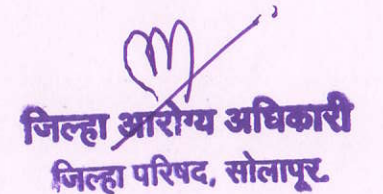 जिल्हा आरोग्य अधिकारी
जिल्हा परिषद, सोलापूर.